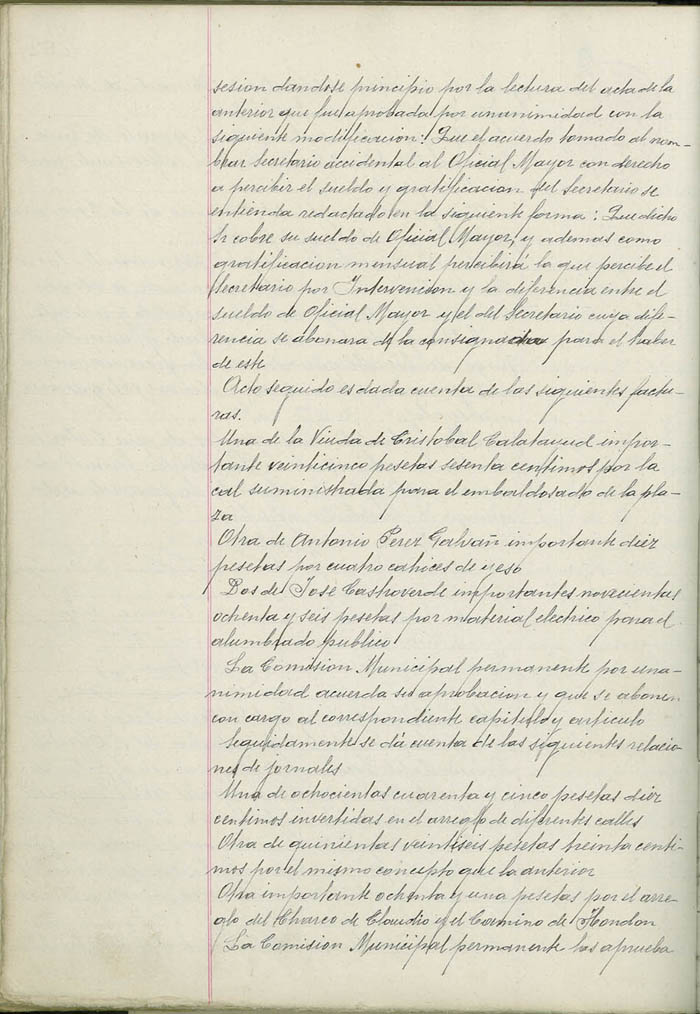 sesion dandose principio por la lectura del acta de la
anterior que fue aprobada por unanimidad con la
siguiente modificacion: Que el acuerdo tomado al nom-
brar Secretario accidental al Oficial Mayor con derecho
a percibir el sueldo y gratificacion del Secretario se
entienda redactado en la siguiente forma: Que dicho
Sr cobre su sueldo de Oficial Mayor, y ademas como
gratificacion mensual percibirá la que percibe el
Secretario por Intervencion y la diferencia entre el
sueldo de Oficial Mayor y el del Secretario cuya dife-
rencia se abonara de la consignada para el haber
de este
Acto seguido es dada cuenta de las siguientes factu-
ras.
Una de la Viuda de Cristobal Calatayud impor-
tante veinticinco pesetas sesenta centimos por la
cal suministrada para el embaldosado de la pla-
za
Otra de Antonio Perez Galvañ importante diez
pesetas por cuatro cahices de yeso
Dos de José Castroverde importantes novecientas
ochenta y seis pesetas por material electrico para el
alumbrado publico
La Comision Municipal permanente por una-
nimidad acuerda su aprobacion y que se abonen
con cargo al correspondiente capitulo y articulo
Seguidamente se dá cuenta de las siguientes relacio-
nes de jornales
Una de ochocientas cuarenta y cinco pesetas diez
centimos invertidas en el arreglo de diferentes calles
Otra de quinientas veintiseis pesetas treinta centi-
mos por el mismo concepto que la anterior
Otra importante ochenta y una pesetas por el arre-
glo del Charco de Claudio y el Camino de Hondon
La Comision Municipal permanente las aprueba